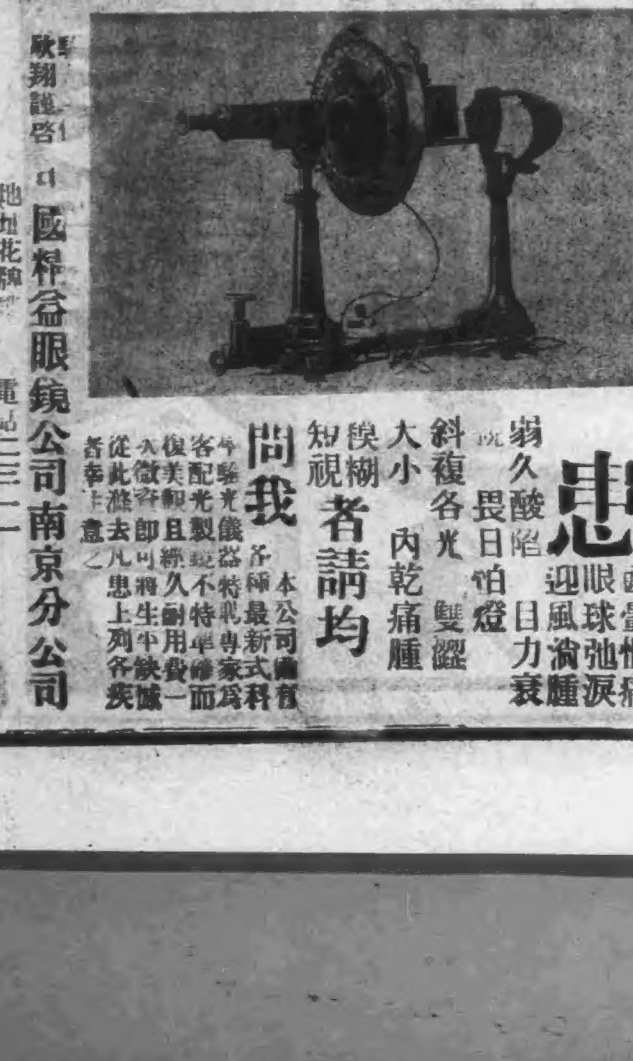 患
眼球弛淚
迎風淌腫
弱久酸陷 目力衰
畏日怕燈
斜複各光 雙澀
大小 內乾痛腫
糢糊
短視 者請均
問我
本公司備有
各種最新式科
驗光儀器特聘專家爲
客配光製鏡不特準確而
復美觀且經久耐用費一
次微資卽可將生平缺憾
從此滌去凡患上列各疾
者幸注意之
歐翔謹啓
國精益眼鏡公司南京分公司
地址花牌
電話二三一一